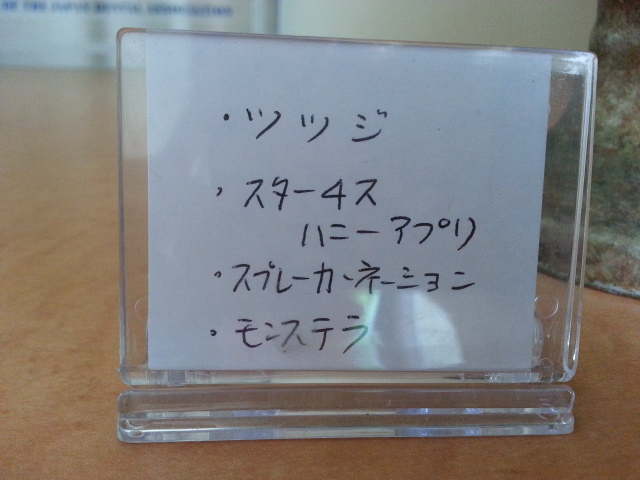 OF THE JAPAN DENTAL ASSOCIATION
・ツツジ
・スター4ス
ハニーアプリ
・スプレーカーネーション
・モンステラ